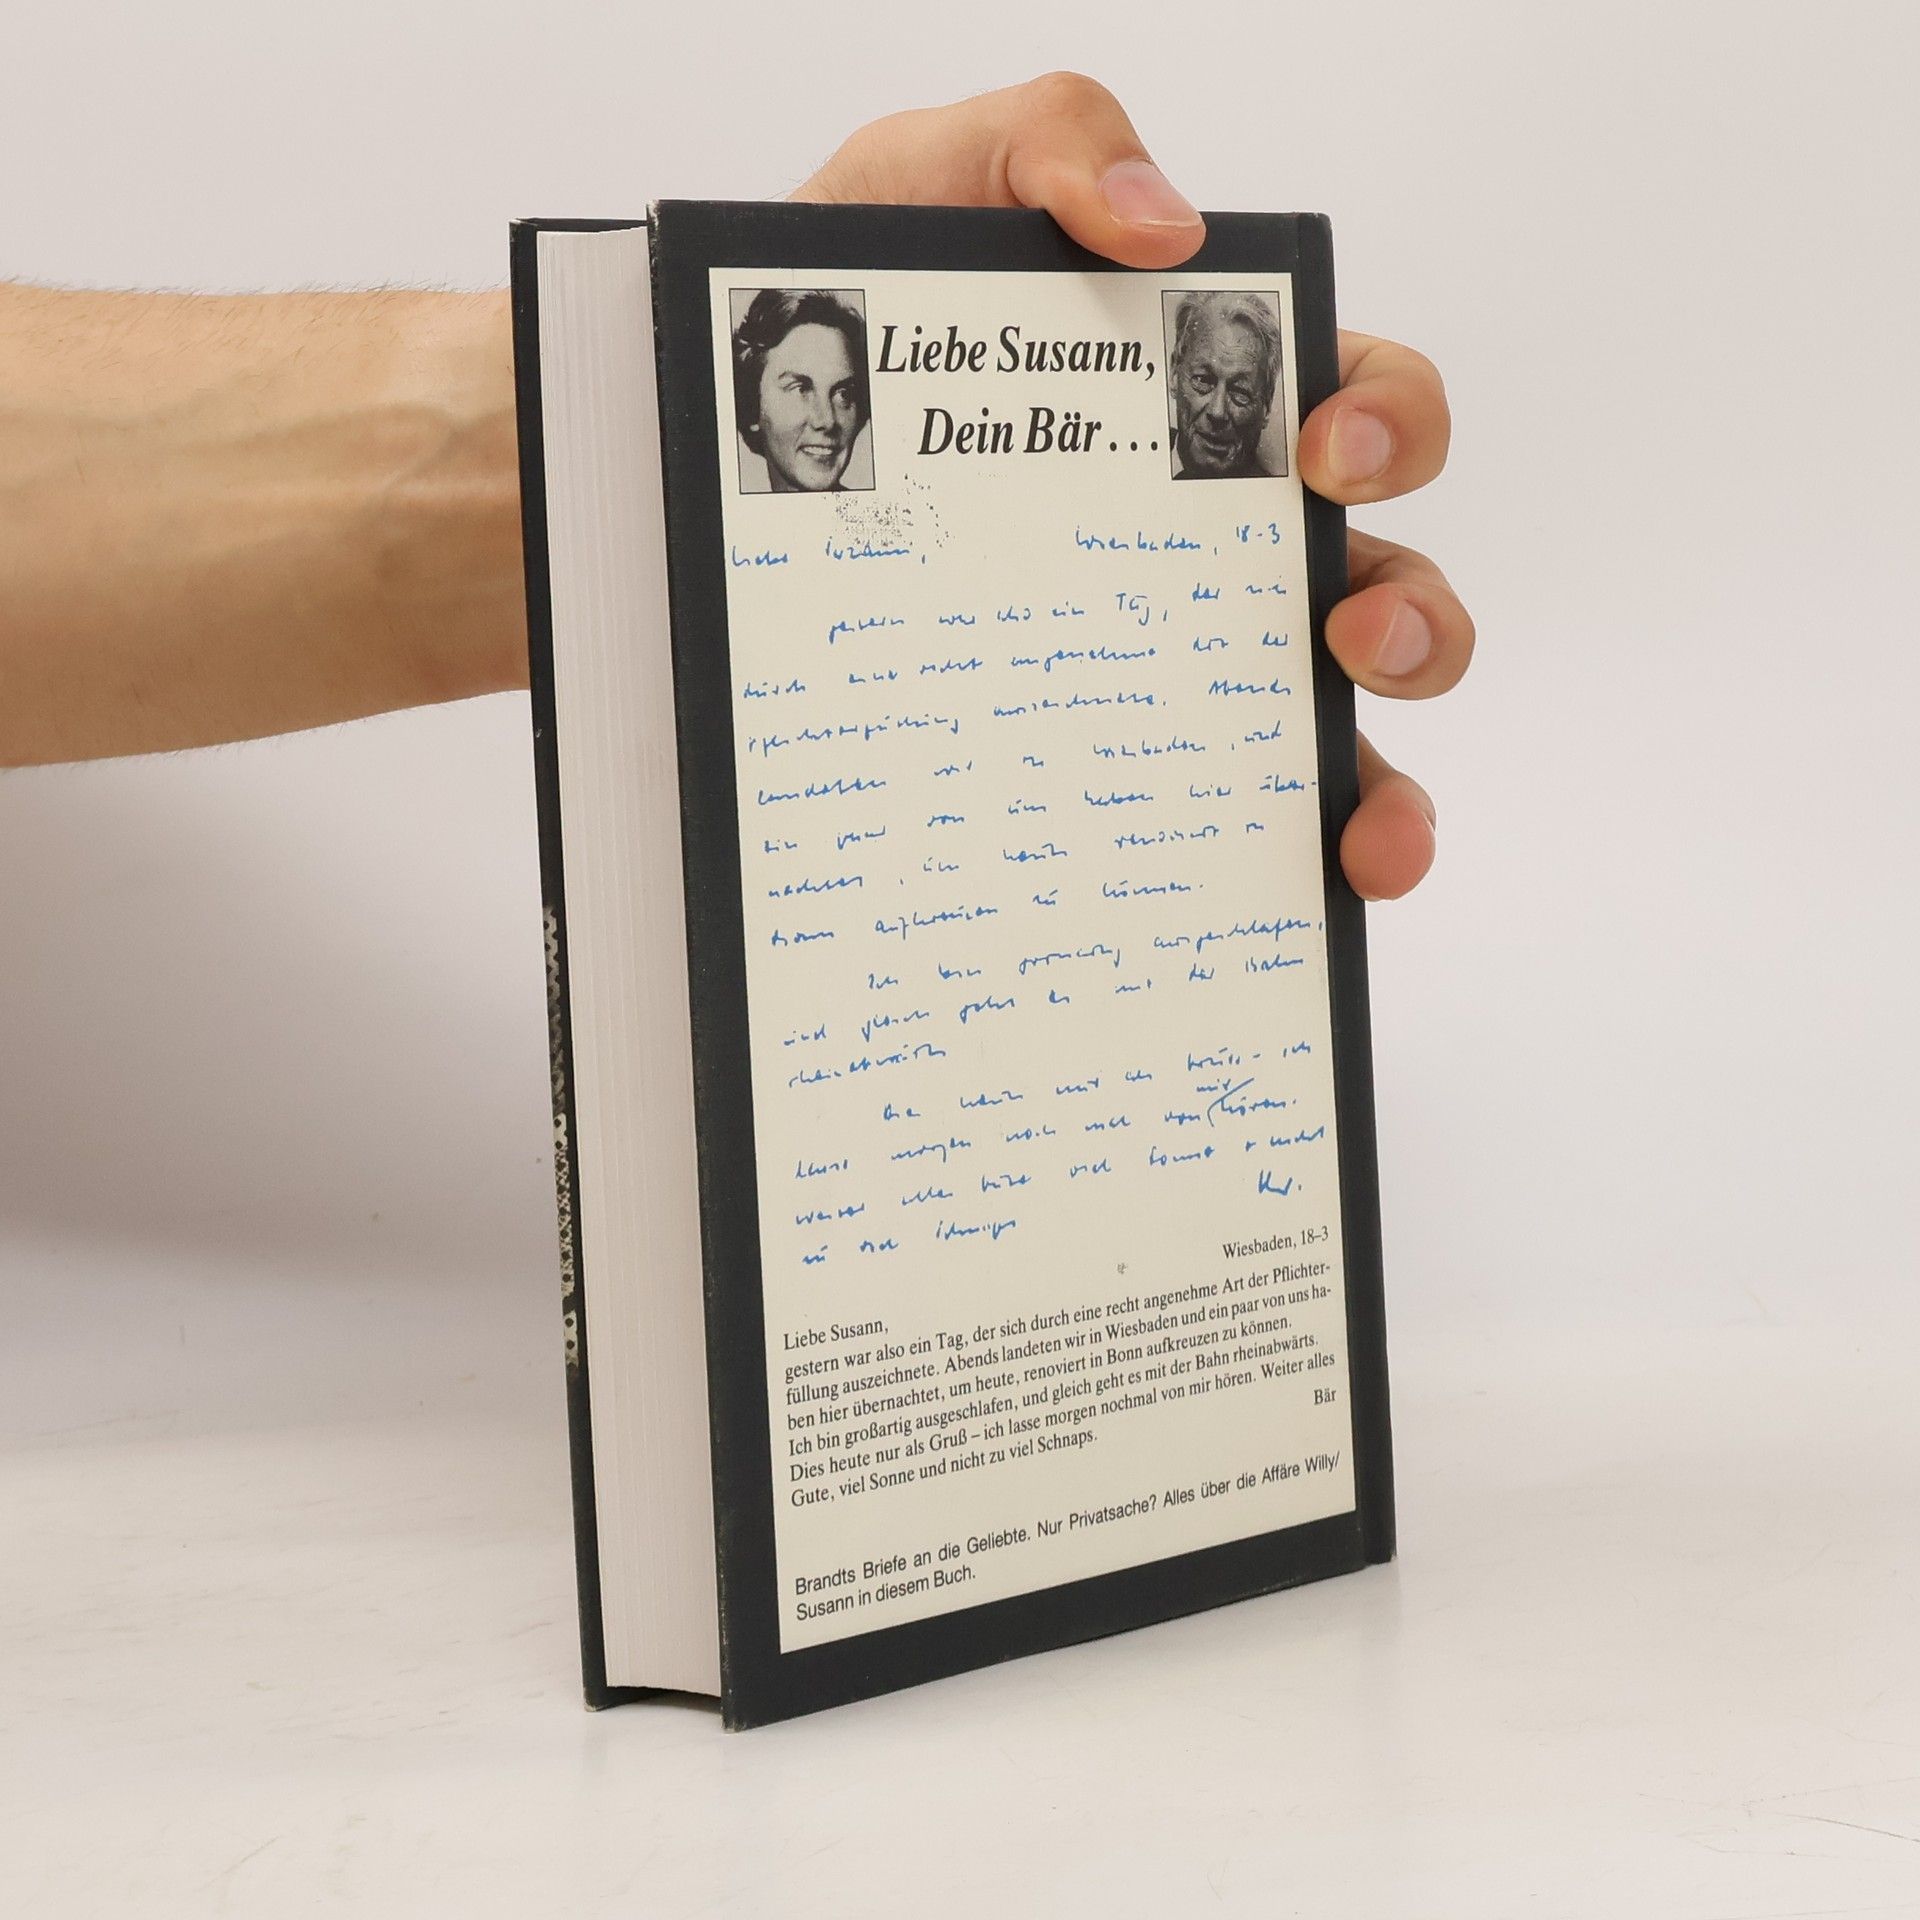 Liebe Susann,
Dein Bär...
Liebe Susann, Wiesbaden, 18-3
gestern war also ein Tag, der sich
durch eine recht angenehme Art der
Pflichterfüllung auszeichnete. Abends
landeten wir in Wiesbaden, und
ein paar von uns haben hier über-
nachtet, um heute renoviert in
Bonn aufkreuzen zu können.
Ich bin grossartig ausgeschlafen,
und gleich geht es mit der Bahn
rheinabwärts
Dies heute nur als Gruss - ich
mir
lasse morgen noch mal von hören.
Weiter alles Gute viel Sonne + nicht
zu viel Schnaps
Wiesbaden, 18–3
Liebe Susann,
gestern war also ein Tag, der sich durch eine recht angenehme Art der Pflichter-
füllung auszeichnete. Abends landeten wir in Wiesbaden und ein paar von uns ha-
ben hier übernachtet, um heute, renoviert in Bonn aufkreuzen zu können.
Ich bin großartig ausgeschlafen, und gleich geht es mit der Bahn rheinabwärts.
Dies heute nur als Gruß – ich lasse morgen nochmal von mir hören. Weiter alles
Gute, viel Sonne und nicht zu viel Schnaps.
Bär
Brandts Briefe an die Geliebte. Nur Privatsache? Alles über die Affäre Willy/
Susann in diesem Buch.